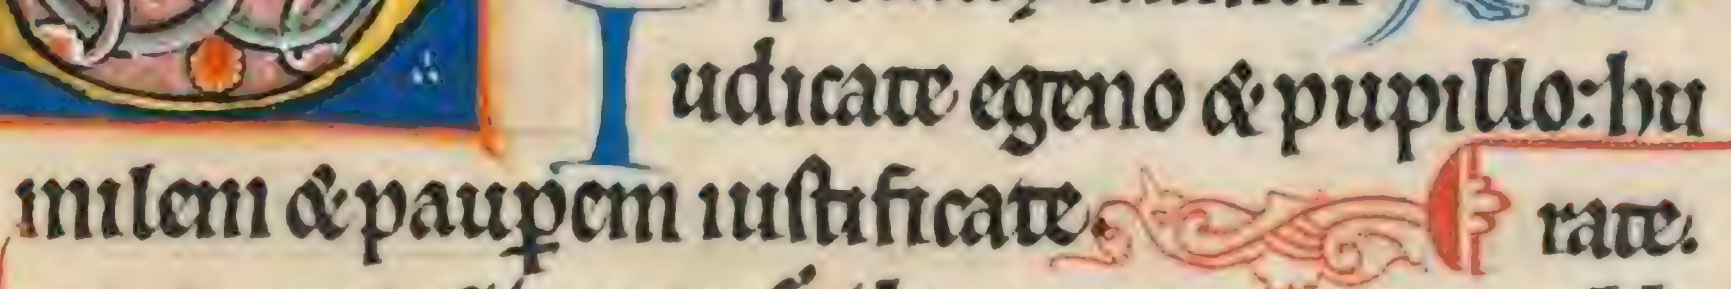 Iudicate egeno & pupillo: hu
milem & paup̲em iustificate. rate.